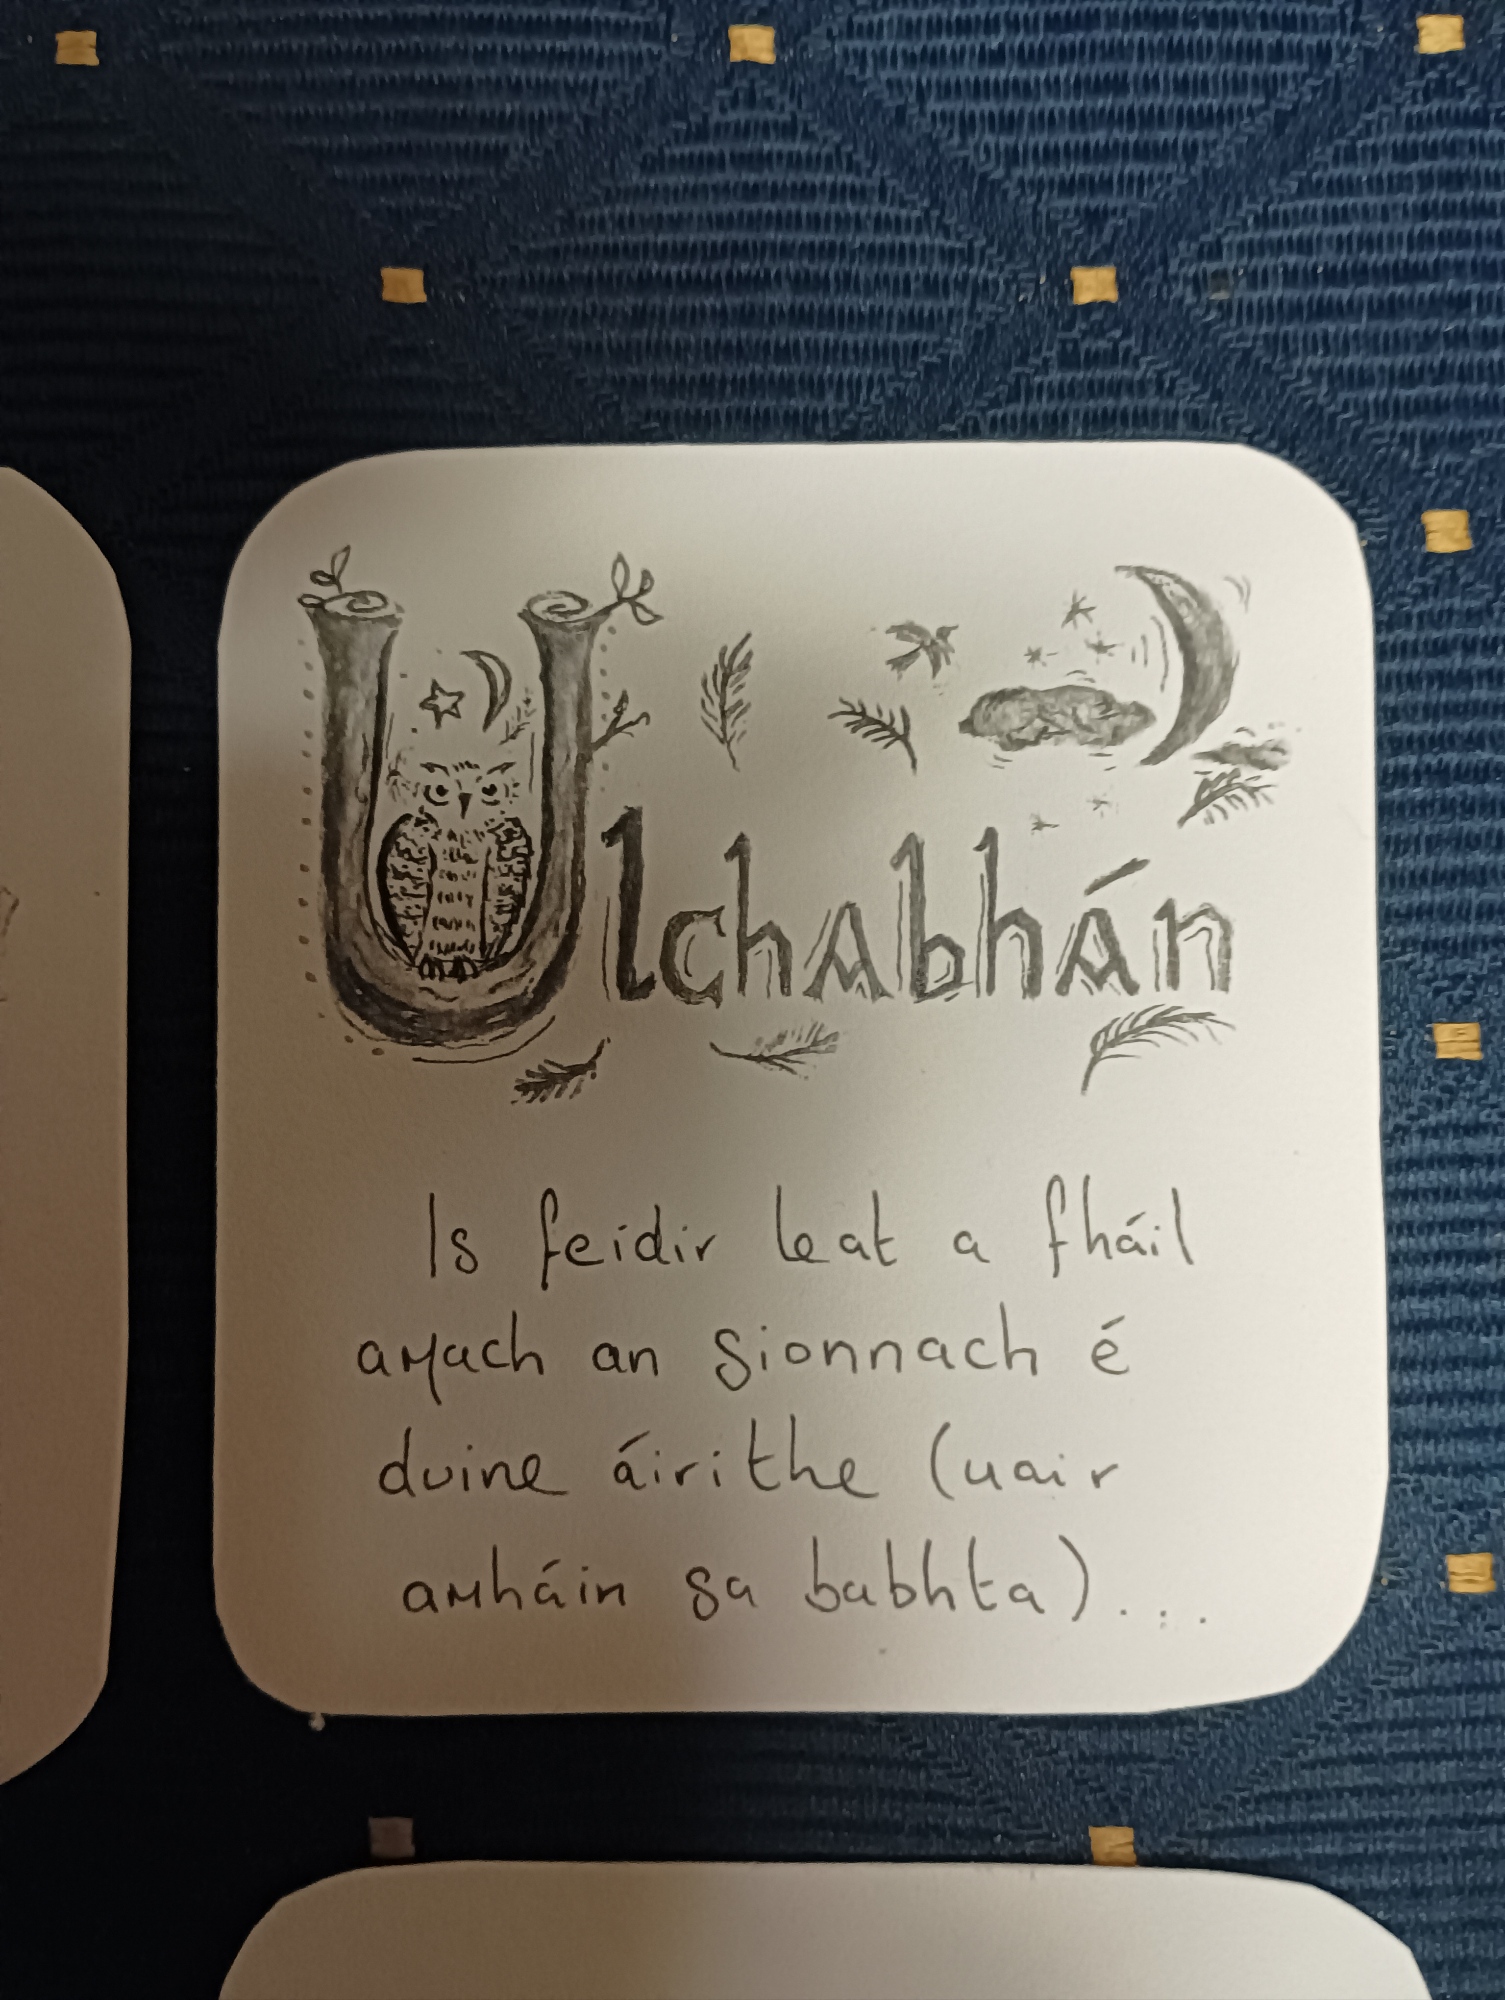 Ulchabhán
Is feidir leat a fháil
amach an sionnach é
duine áirithe (uair
amháin sa babhta)...